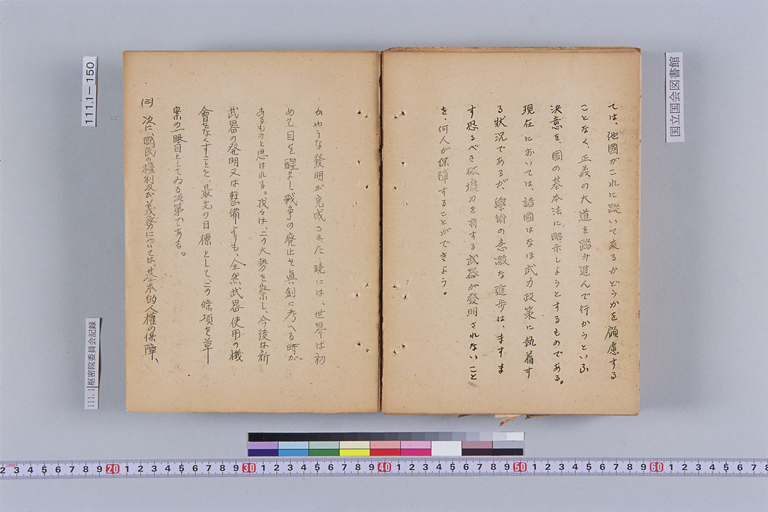 ては、他國がこれに従いて来るかどうかを顧慮する
ことなく、正義の大道を踏み進んで行かうといふ
決意を、國の基本法に明示しようとするものである。
現在においては、諸國はなほ武力政策に執着す
る状況であるが、學術の急激な進歩は、ますま
す恐るべき破壊力を有する武器が發明されないこと
を、何人が保障することができよう。
かやうな發明が完成された曉には、世界は初
めて目を醒まし戰争の廃止を眞剣に考へる時が
あるものと思はれる。我々は、この大勢を察し、今後は新
武器の発明又は整備よりも、全然武器使用の機
會をなくすことを最先の目標として、この條項を草
案の一眼目としてゐる次第である。
次に、國民の權利及び義務については、基本的人權の保障、
国立国会図書館
111.1―150
111.1 枢密院委員会記録
2 3 4 5 6 7 8 9 20 1 2 3 4 5 6 7 8 9 30 1 2 3 4 5 6 7 8 9 40 1 2 3 4 5 6 7 8 9 50 1 2 3 4 5 6 7 8 9 60 1 2 3 4 5 6 7